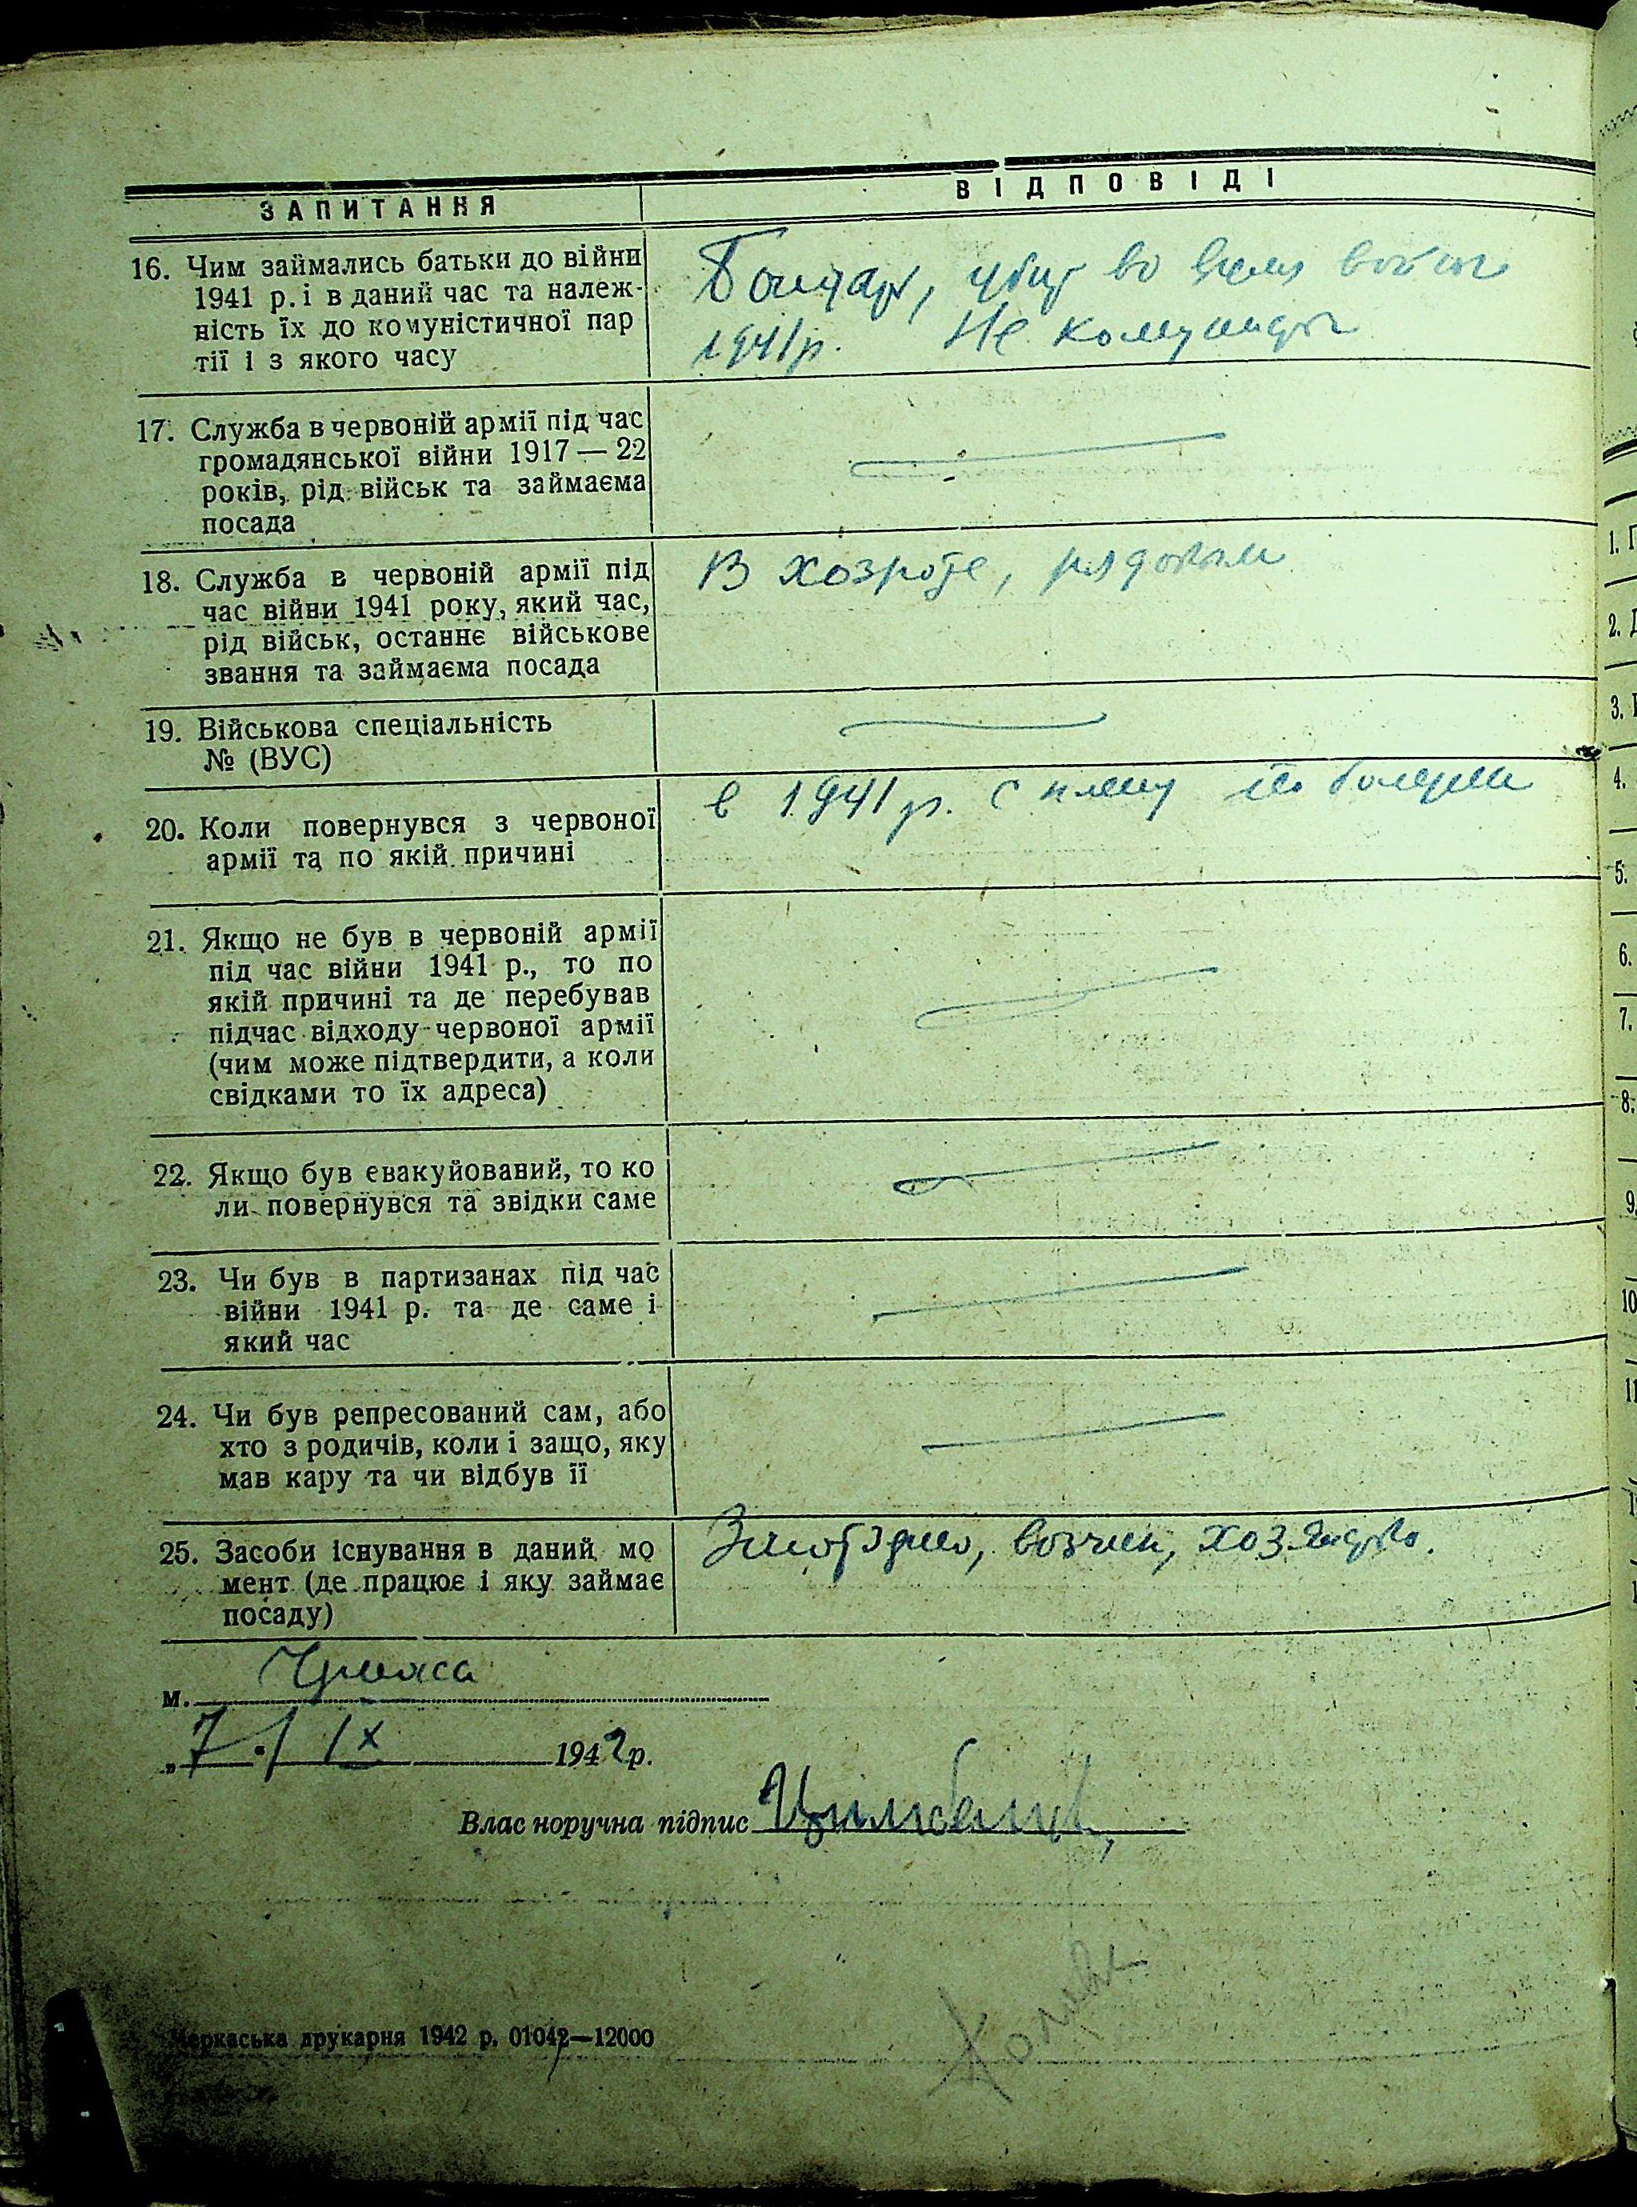 ЗАПИТАННЯ
ВІДПОВІДІ
16. Чим займались батьки до війни
1941 р. і в даний час та належ-
ність їх до комуністичної пар
тії і з якого часу
Бондарь, убит во время войны
1941 р. Не комунисты
17. Служба в червоній армії під час
громадянської війни 1917 — 22
років, рід військ та займаєма
посада
18. Служба в червоній армії під
час війни 1941 року, який час,
рід військ, останнє військове
звання та займаєма посада
В хозроте, рядовым
19. Військова спеціальність
№ (ВУС)
20. Коли повернувся з червоної
армії та по якій причині
в 1941 р. с плену по болезни
21. Якщо не був в червоній армії
під час війни 1941 р., то по
якій причині та де перебував
підчас відходу червоної армії
(чим може підтвердити, а коли
свідками то їх адреса)
22. Якщо був евакуйований, то ко
ли повернувся та звідки саме
23. Чи був в партизанах під час
війни 1941 р. та де саме і
який час
24. Чи був репресований сам, або
хто з родичів, коли і защо, яку
мав кару та чи відбув її
25. Засоби існування в даний мо
мент (де працює і яку займає
посаду)
м.
„7“ IX 1942 р.
Власноручна підпис
Черкаська друкарня 1942 р. 01042—12000